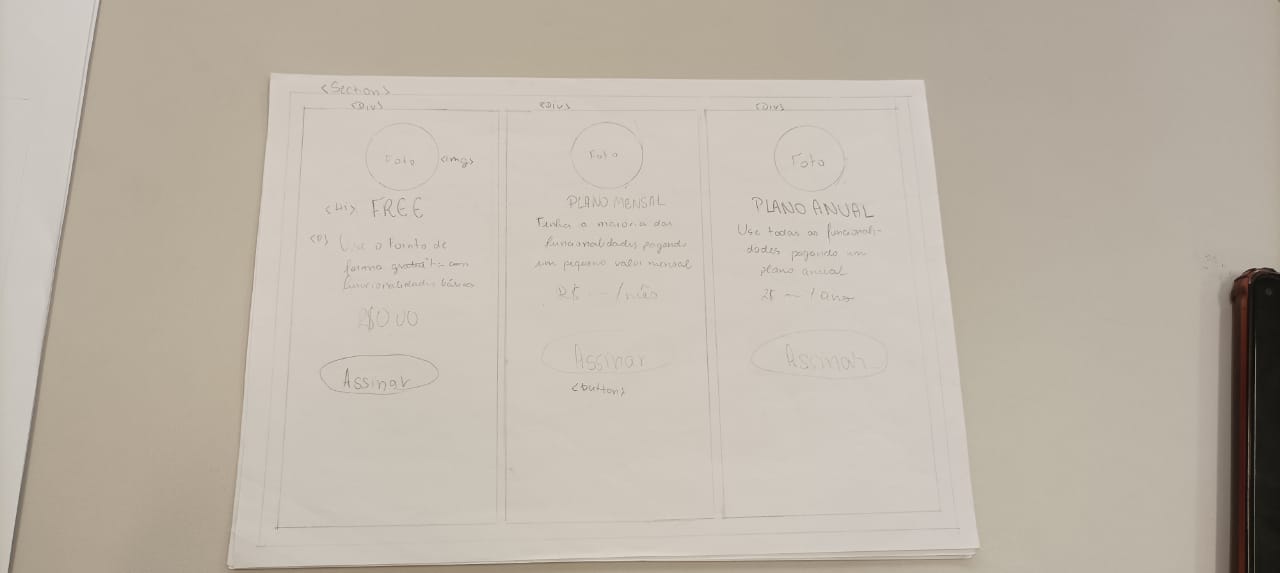 <Section>
<Div>
<Div>
<Div>
Foto
<img>
<H1> FREE
<P> Use o Formato de
forma gratuita com
funcionalidades básicas
R$0,00
Assinar
Foto
PLANO MENSAL
Tenha a maioria das
funcionalidades pagando
um pequeno valor mensal
R$ — /mês
Assinar
<button>
Foto
PLANO ANUAL
Use todas as funcionali-
dades pagando um
plano anual
R$ — / ano
Assinar